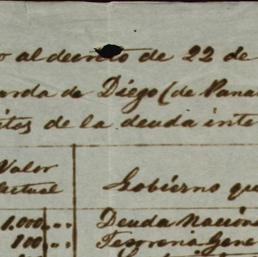 al decreto de 22 de
de Diego (de Pana
de la deuda inte
Valor
actual Gobierno que
1.000 Deuda Nacion
100 Tesoreria Gene